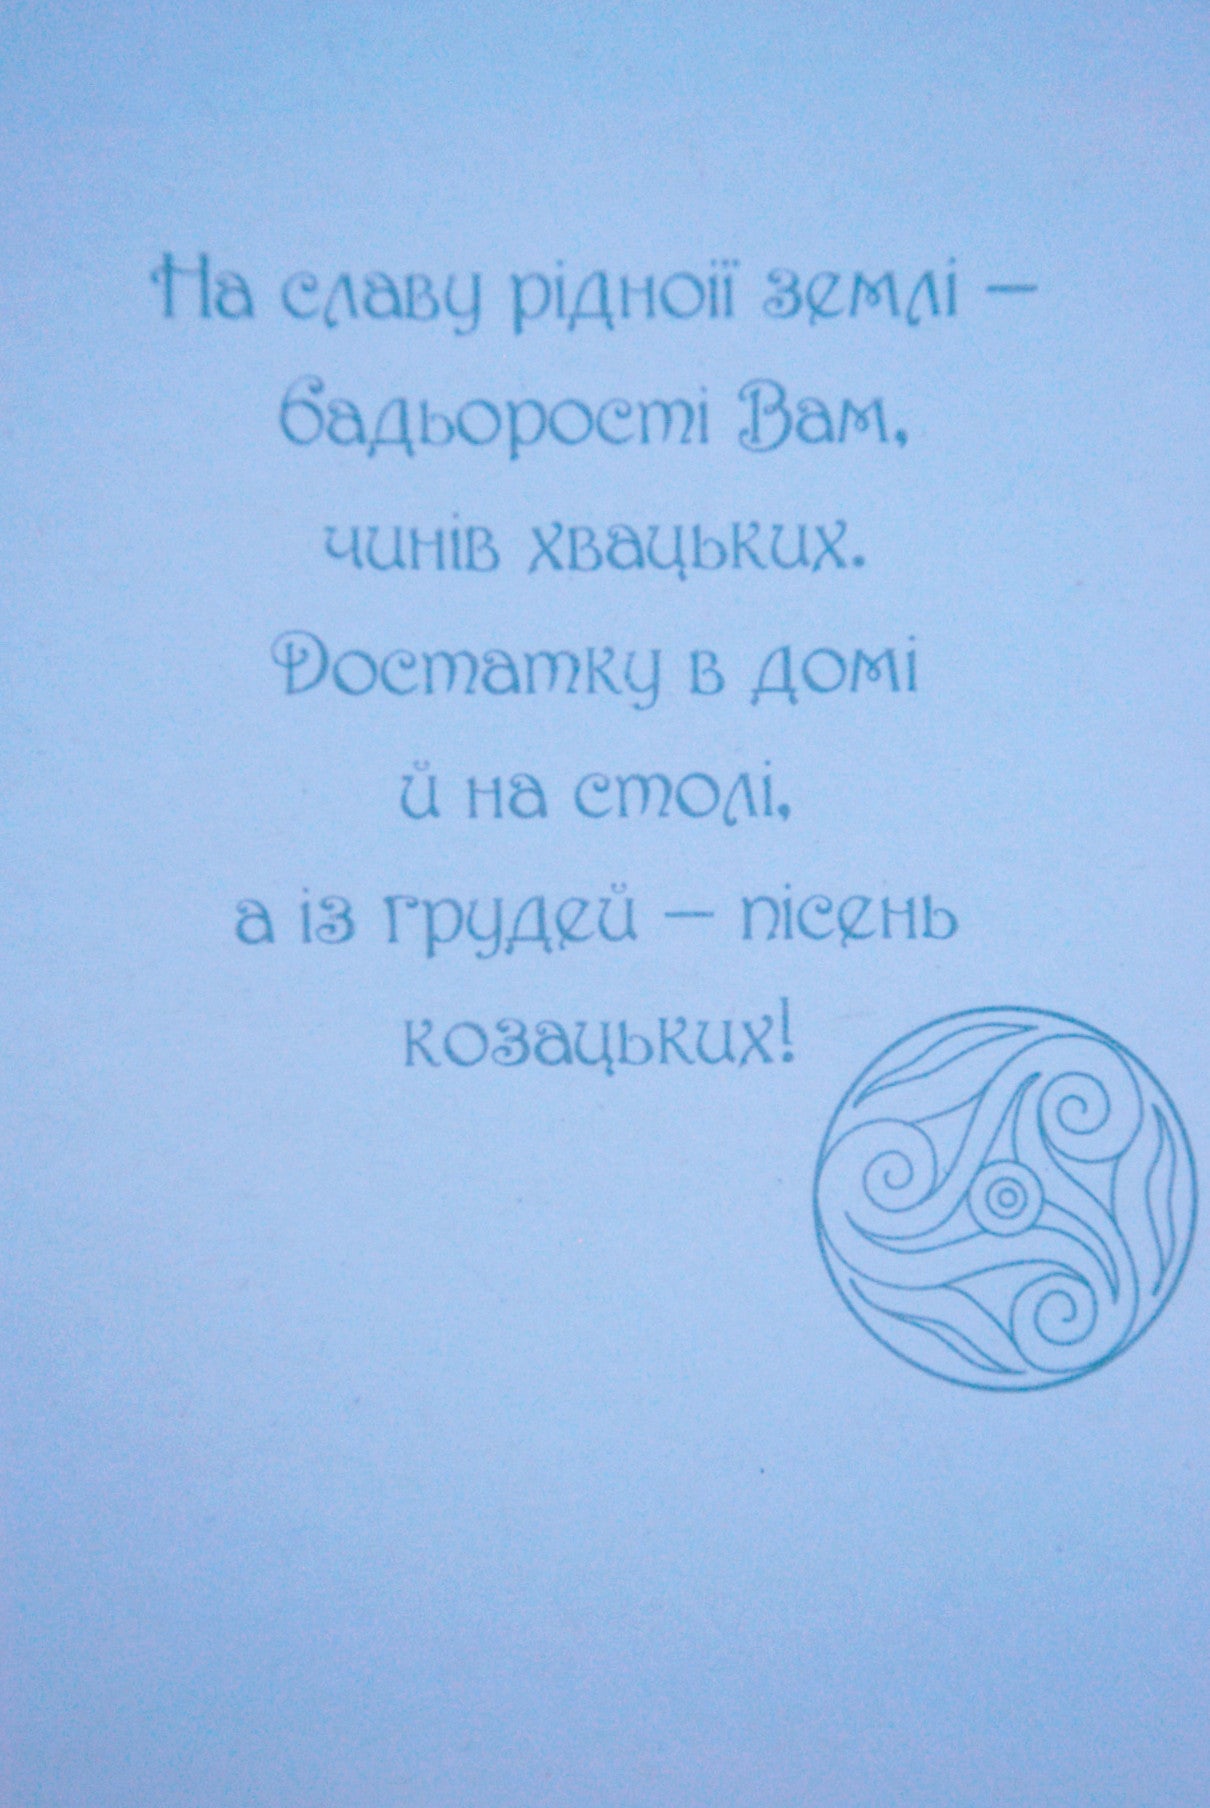 На славу рідноії землі –
бадьорості Вам,
чинів хвацьких.
Достатку в домі
й на столі,
а із грудей – пісень
козацьких!